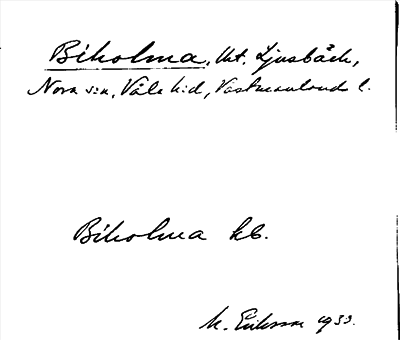 Biholma, Ut. Ljusbäck,
Nora s:n, Våla h:d, Västmanlands l.
Biholma kb.
M. Eriksson 1933.